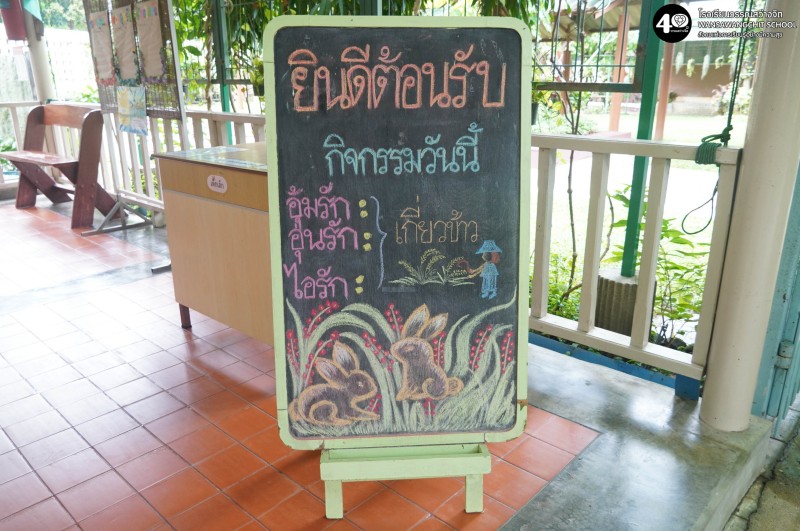 ยินดีต้อนรับ
กิจกรรมวันนี้
อุ้มรัก :
อุ่นรัก :
ไอรัก :
เกี่ยวข้าว
40
โรงเรียนวรรณสว่างจิต
WANSAWANGCHIT SCHOOL